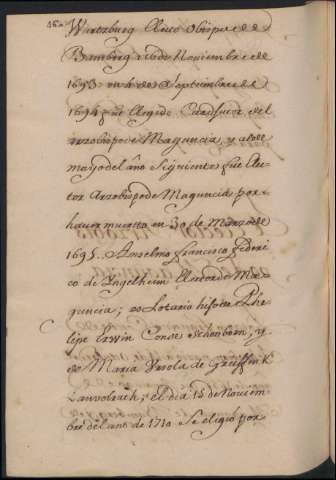 Wurtzburg electo Obispo de
Bamberg a 16 de Noviembre de
1693 en 4 de Septiembre de
1694 fue elegido Coadjutor del
Arzobispo de Maguncia, y a 1 de
mayo del año siguiente fue Elec-
tor Arzobispo de Maguncia por
haver muerto en 30 de Marzo de
1695. Anselmo Francisco Federi
co de Ingelheim Elector de Ma-
guncia; es Lotario hijo de Phe-
lipe Erwin Conde Schonborn, y
de Maria Ursola de Greiffenk
Lauvolrath; el dia 15 de Noviem
bre del año de 1710 se eligio por